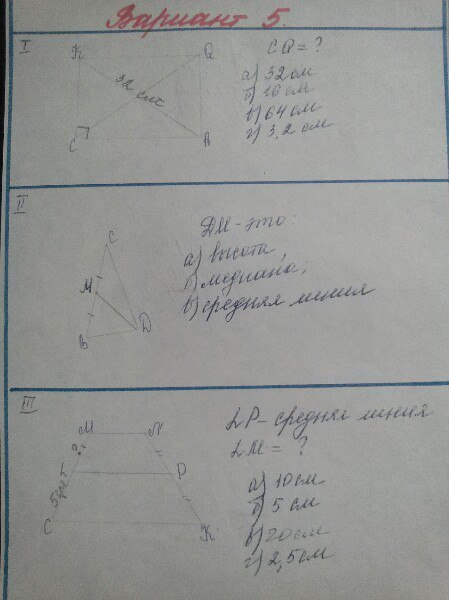 Вариант 5.
I
K Q
CQ = ?
32 см
а) 32 см
б) 16 см
в) 64 см
г) 3,2 см
C A
II
ДМ - это:
C
а) высота,
M
б) медиана,
в) средняя линия
B D
III
M N
LP - средняя линия
LM = ?
?
L P
а) 10 см
5 см
б) 5 см
C K
в) 20 см
г) 2,5 см